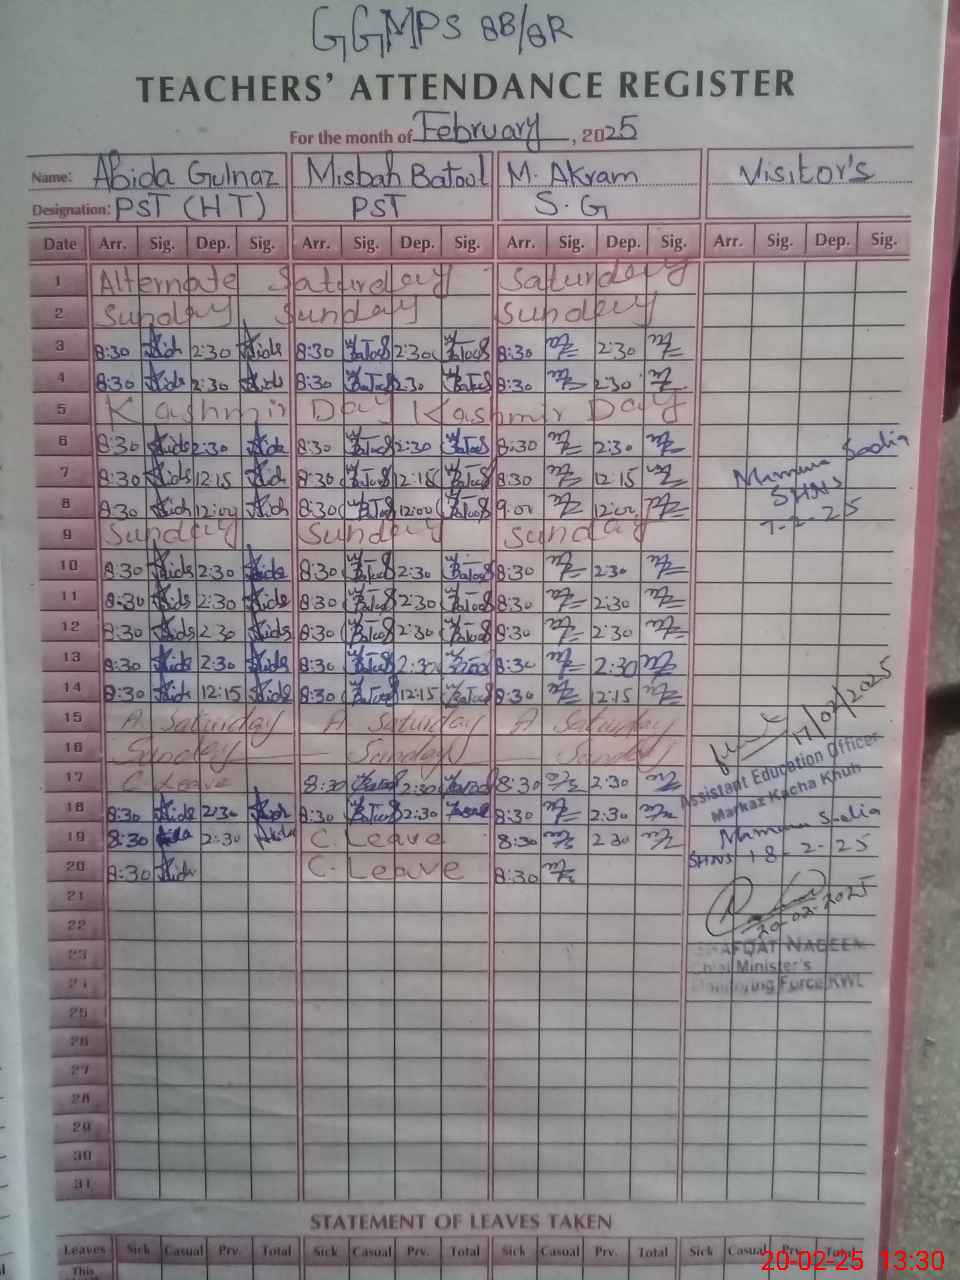 GGMPS 8B/8R
TEACHERS' ATTENDANCE REGISTER
For the month of February, 2025
Name: Abida Gulnaz Misbah Batool M. Akram Visitor's
Designation: PST (HT) PST S.G
Date Arr. Sig. Dep. Sig. Arr. Sig. Dep. Sig. Arr. Sig. Dep. Sig. Arr. Sig. Dep. Sig.
1 Alternate Saturday Saturday
2 Sunday Sunday Sunday
3 8:30 2:30 8:30 Batool 2:30 Batool 8:30 2:30
4 8:30 2:30 8:30 Batool 2:30 Batool 8:30 2:30
5 Kashmir Day Kashmir Day
6 8:30 2:30 8:30 Batool 2:30 Batool 8:30 2:30
7 8:30 12:15 8:30 Batool 12:15 Batool 8:30 12:15
8 8:30 12:00 8:30 Batool 12:00 Batool 9:00 12:00
Sadia
SHNS
7-2-25
9 Sunday Sunday Sunday
10 8:30 2:30 8:30 Batool 2:30 Batool 8:30 2:30
11 8:30 2:30 8:30 Batool 2:30 Batool 8:30 2:30
12 8:30 2:30 8:30 Batool 2:30 Batool 8:30 2:30
13 8:30 2:30 8:30 Batool 2:30 Batool 8:30 2:30
14 8:30 12:15 8:30 Batool 12:15 Batool 8:30 12:15
15 A. Saturday A. Saturday A. Saturday
16 Sunday Sunday Sunday
17/02/2025
Assistant Education Officer
Markaz Kacha Khuh
17 C. Leave 8:30 Batool 2:30 Batool 8:30 2:30
18 8:30 2:30 8:30 Batool 2:30 Batool 8:30 2:30
19 8:30 2:30 C. Leave 8:30 2:30
Sadia
SHNS 18-2-25
20 8:30 C. Leave 8:30
21
20-02-2025
22
23
NADEEM
Minister's
24
Force KWL
25
26
27
28
29
30
31
STATEMENT OF LEAVES TAKEN
Leaves Sick Casual Prv. Total Sick Casual Prv. Total Sick Casual Prv. Total Sick Casual Prv. Total
This
20-02-25 13:30